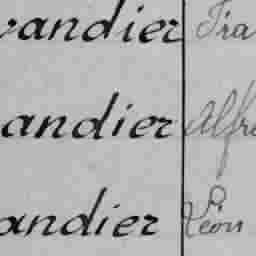 vandier Fra
andier Alfre
andier Léon